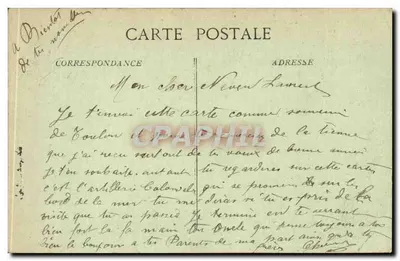 à Bientôt
de tes nouvelles
CARTE POSTALE
CORRESPONDANCE
ADRESSE
Mon cher Neveu Laurent
Je t'envoie cette carte comme souvenir
de Toulon de la tienne
CPAPHIL
que j'ai reçu surtout de ta voeux de bonne année
je t'en souhaite autant tu regarderas sur cette carte
c'est l'artillerie Coloniale qui se promène sur les
bord de la mer tu me diras si tu es près de la
visite que tu as passé Je termine en te serrant
bien fort la main ton oncle qui pense toujours à toi
bien le bonjour à tes Parents de ma part ainsi qu'à tes